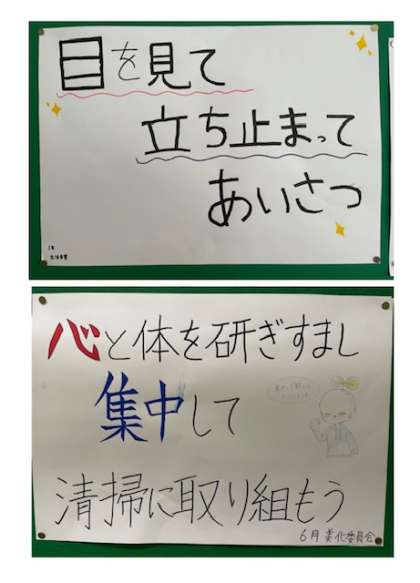 目を見て
立ち止まって
あいさつ
心と体を研ぎすまし
集中して
清掃に取り組もう
6月 美化委員会